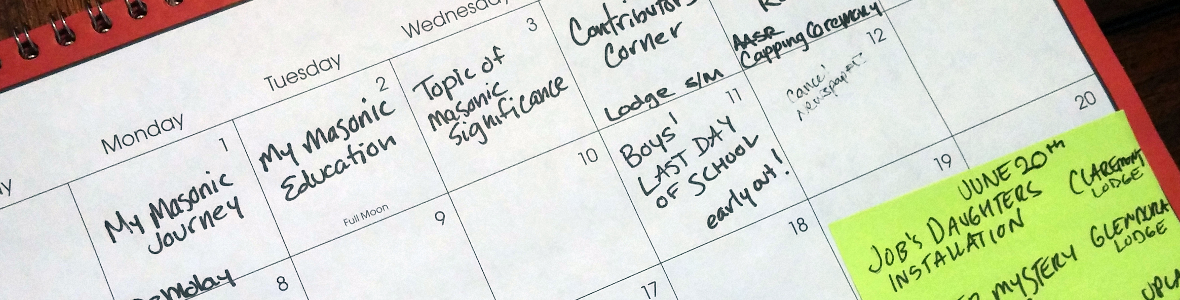 Monday
Tuesday
Wednesday
1
My Masonic
Journey
2
My Masonic
Education
Full Moon
3
Topic of
masonic
Significance
Contributors
Corner
Lodge S/M
AASR
Capping Ceremony
8
9
10
11
Boys'
LAST DAY
OF SCHOOL
early out!
12
Cancel
newspaper
17
18
19
20
JUNE 20th
JOB'S DAUGHTERS
INSTALLATION
CLAREMONT
LODGE
MYSTERY
GLENDORA
LODGE